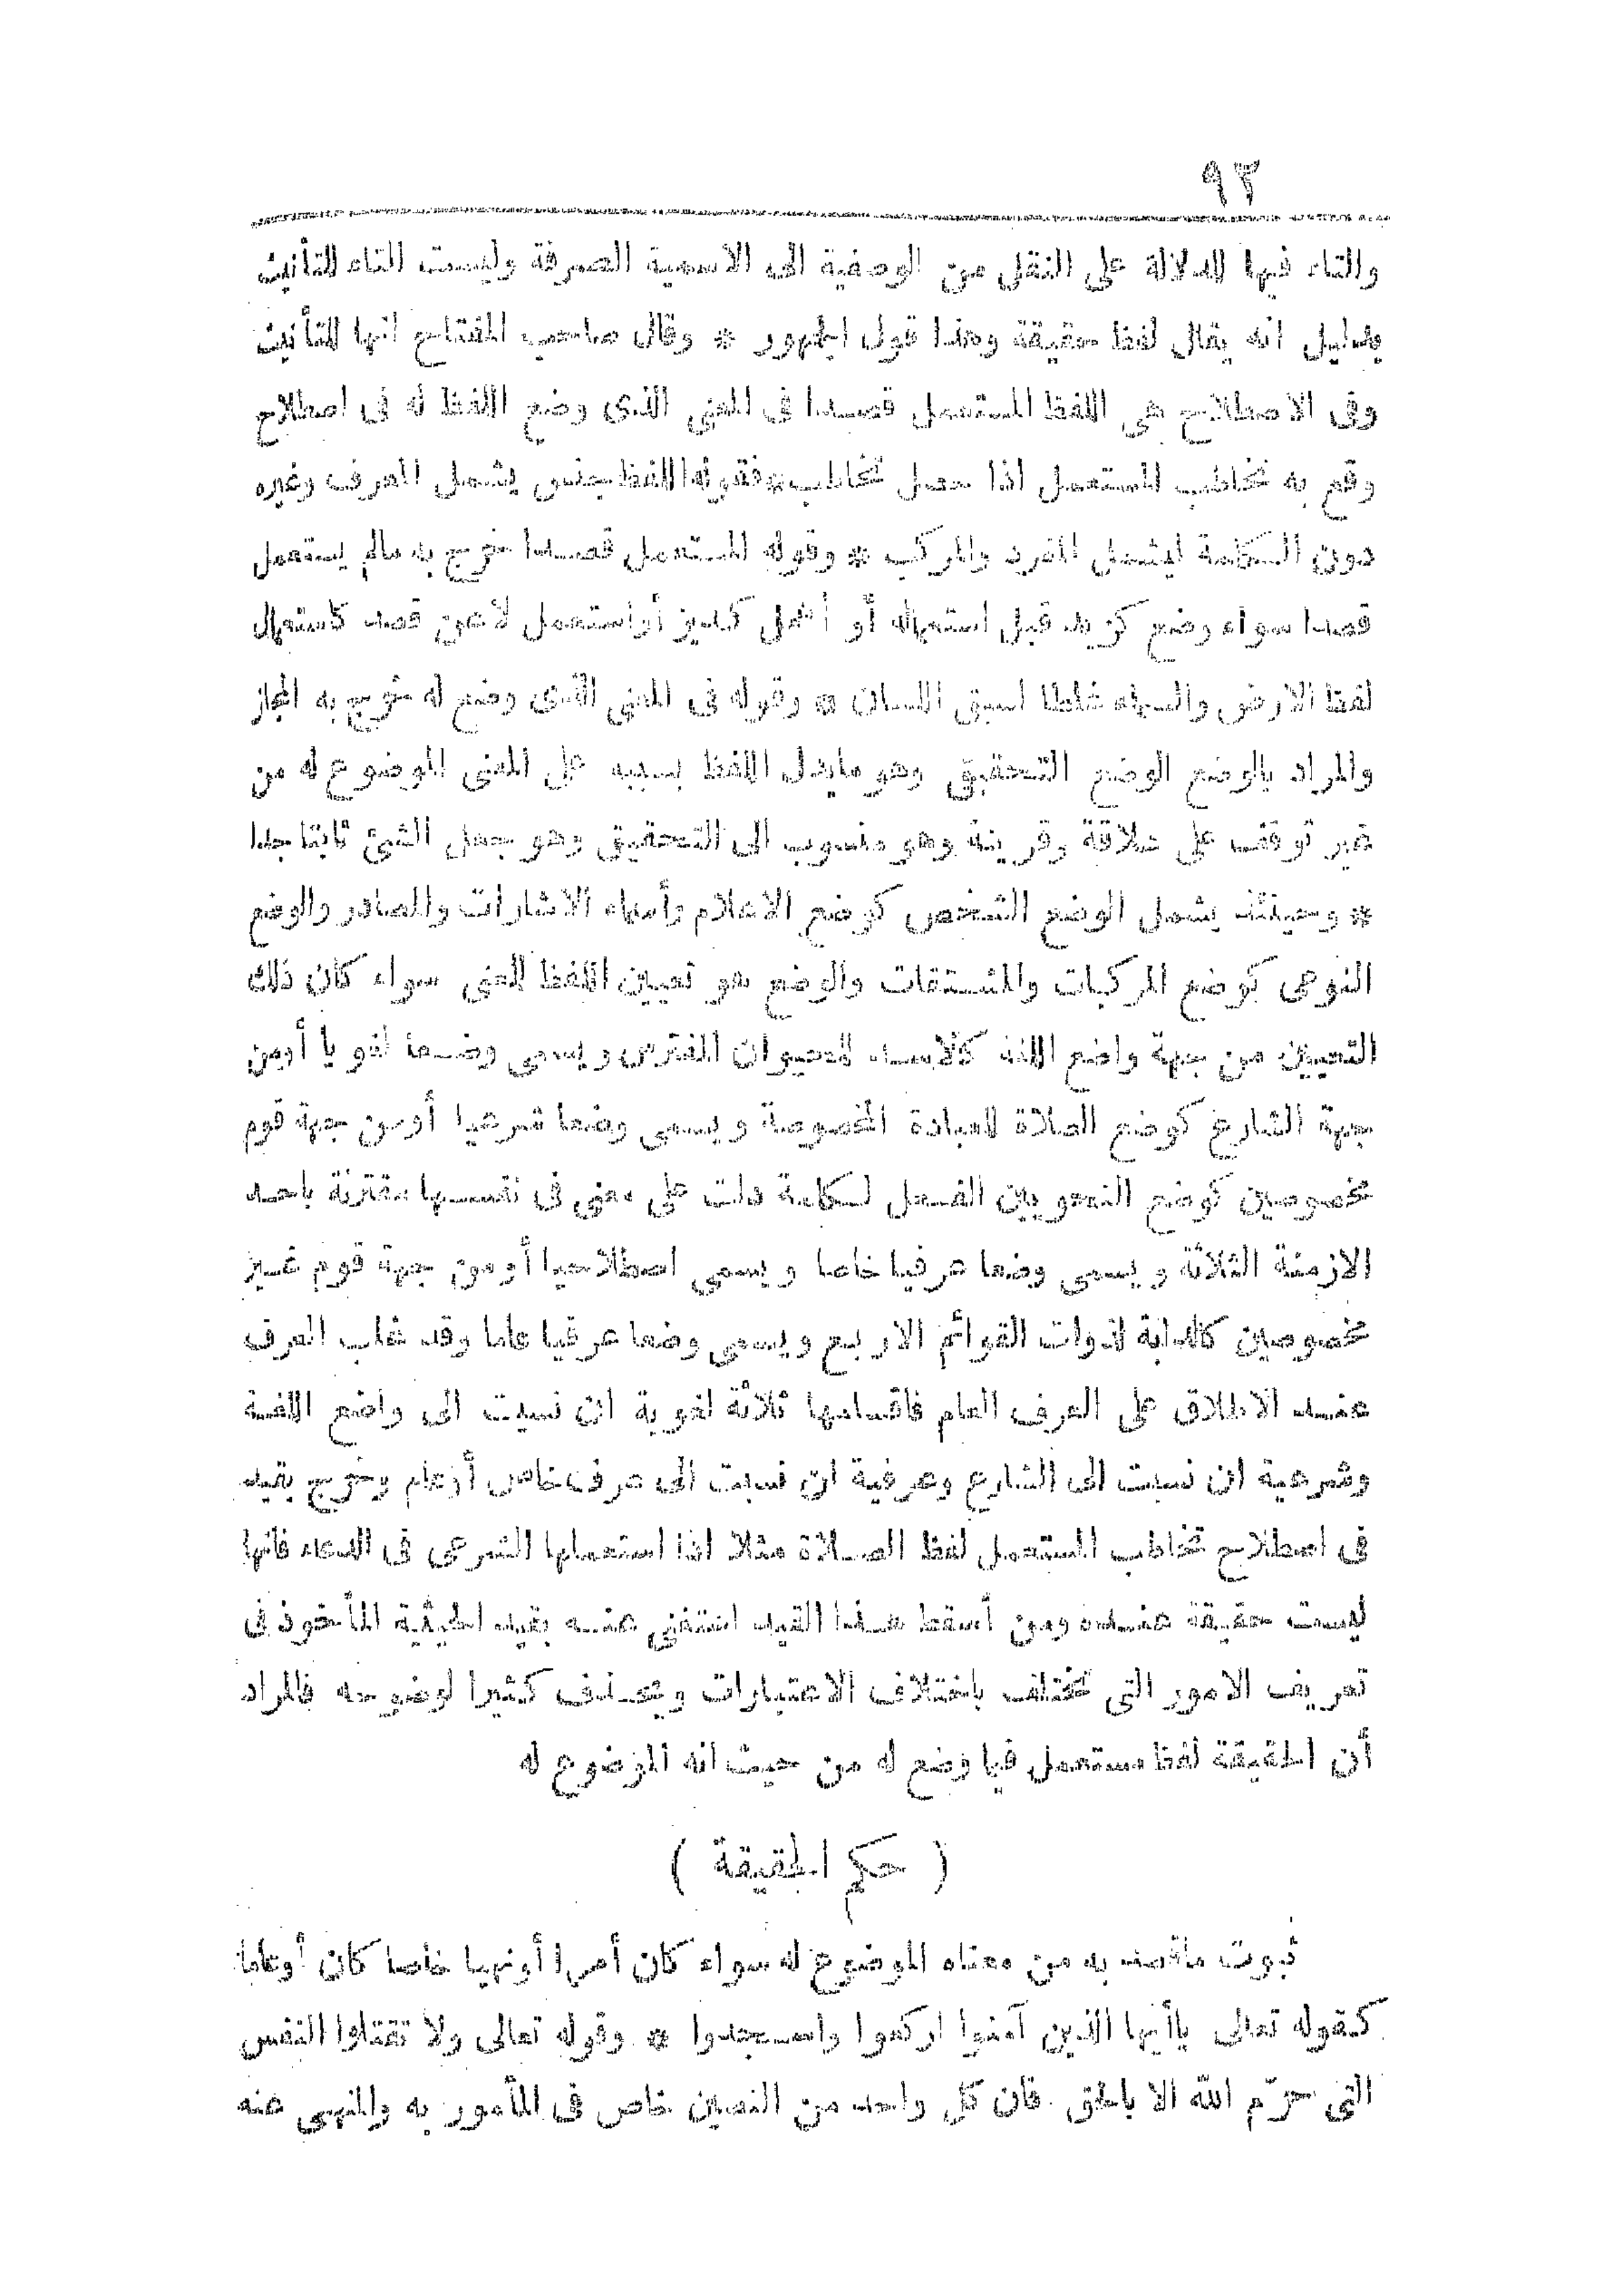 ٩٣
والتاء فيها للدلالة على النقل من الوصفية الى الاسمية الصرفة وليست التاء للتأنيث
بدليل انه يقال لفظ حقيقة وهذا قول الجمهور * وقال صاحب المفتاح انها للتأنيث
وفى الاصطلاح هى اللفظ المستعمل قصدا فى المعنى الذى وضع اللفظ له فى اصطلاح
وقع به تخاطب المستعمل اذا حصل تخاطب * فقوله اللفظ جنس يشمل المعرف وغيره
دون الكلمة ليشمل المفرد والمركب * وقوله المستعمل قصدا خرج به مالم يستعمل
قصدا سواء وضع كزيد قبل استعماله أو أهمل كديز أو استعمل لاعن قصد كاستعمال
لفظ الارض والسماء غلطا لسبق اللسان * وقوله فى المعنى الذى وضع له خرج به المجاز
والمراد بالوضع الوضع التحقيقى وهو مايدل اللفظ بسببه على المعنى الموضوع له من
غير توقف على علاقة وقرينة وهو منسوب الى التحقيق وهو جعل الشئ ثابتا جدا
* وحينئذ يشمل الوضع الشخصى كوضع الاعلام وأسماء الاشارات والمصادر والوضع
النوعى كوضع المركبات والمشتقات والوضع هو تعيين اللفظ للمعنى سواء كان ذلك
التعيين من جهة واضع اللغة كالاسد للحيوان المفترس ويسمى وضعا لغويا أومن
جهة الشارع كوضع الصلاة للعبادة المخصوصة ويسمى وضعا شرعيا أومن جهة قوم
مخصوصين كوضع النحويين الفعل لكلمة دلت على معنى فى نفسها مقترنة باحد
الازمنة الثلاثة ويسمى وضعا عرفيا خاصا ويسمى اصطلاحيا أومن جهة قوم غير
مخصوصين كالدابة لذوات القوائم الاربع ويسمى وضعا عرفيا عاما وقد غلب العرف
عند الاطلاق على العرف العام فاقسامها ثلاثة لغوية ان نسبت الى واضع اللغة
وشرعية ان نسبت الى الشارع وعرفية ان نسبت الى عرف خاص أوعام وخرج بقيد
فى اصطلاح تخاطب المستعمل لفظ الصلاة مثلا اذا استعملها الشرعى فى الدعاء فانها
ليست حقيقة عنده ومن أسقط هذا القيد استغنى عنه بقيد الحيثية المأخوذ فى
تعريف الامور التى تختلف باختلاف الاعتبارات ويحذف كثيرا لوضوحه فالمراد
أن الحقيقة لفظ مستعمل فيما وضع له من حيث انه الموضوع له
( حكم الحقيقة )
ثبوت ماقصد به من معناه الموضوع له سواء كان أمرا أونهيا خاصا كان أوعاما
كقوله تعالى ياأيها الذين آمنوا اركعوا واسجدوا * وقوله تعالى ولا تقتلوا النفس
التى حرّم الله الا بالحق فان كل واحد من النصين خاص فى المأمور به والمنهى عنه